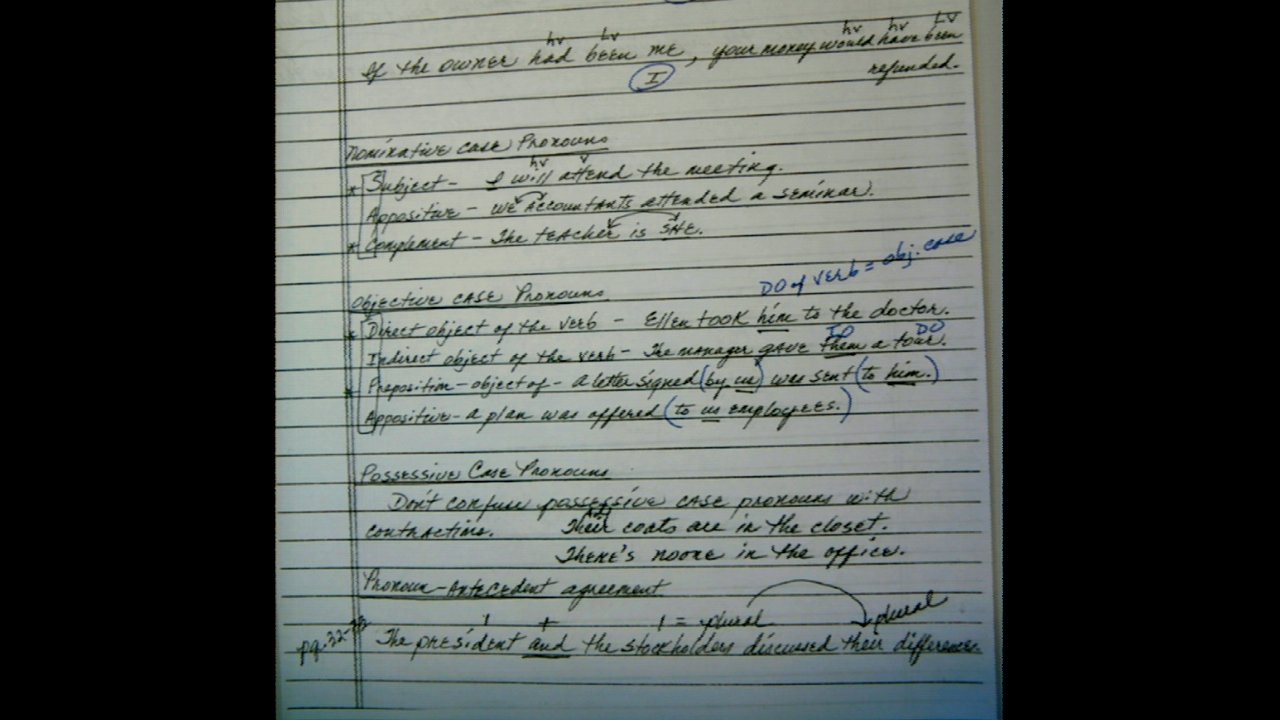 hv Lv hv hv Lv
If the owner had been me, your money would have been
I refunded.
Nominative Case Pronouns
hv v
* Subject - I will attend the meeting.
Appositive - We accountants attended a seminar.
* Complement - The teacher is she.
DO of verb = obj. case
Objective Case Pronouns
* Direct object of the verb - Ellen took him to the doctor.
IO DO
Indirect object of the verb - The manager gave them a tour.
* Preposition - object of - a letter signed (by us) was sent (to him.)
Appositive - a plan was offered (to us employees.)
Possessive Case Pronouns
Don't confuse possessive case pronouns with
contractions. Their coats are in the closet.
There's noone in the office.
Pronoun - Antecedent agreement
1 + 1 = plural plural
pg. 32- The president and the stockholders discussed their differences.